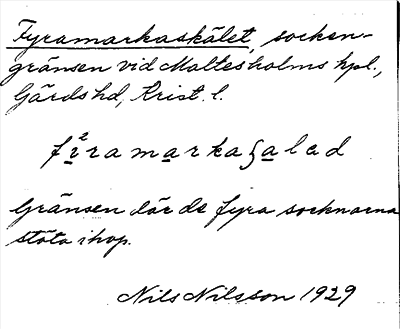 Fyramarkaskälet, socken-
gränsen vid Maltesholms hpl.,
Gärds hd, Krist. l.
fi²ramarkaʃalad
Gränsen där de fyra socknarna
stöta ihop.
Nils Nilsson 1929